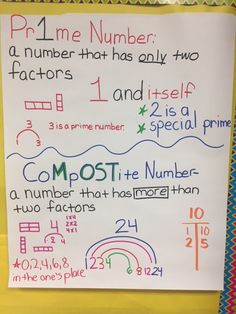 Pr1me Number:
a number that has only two
factors
1 and itself
* 2 is a
special prime
1 3
3 is a prime number.
CoMpOSTite Number-
a number that has more than
two factors
4
1x4
2x2
4x1
1 2 4
24
1 2 3 4 6 8 12 24
10
1 10
2 5
* 0,2,4,6,8
in the one's place